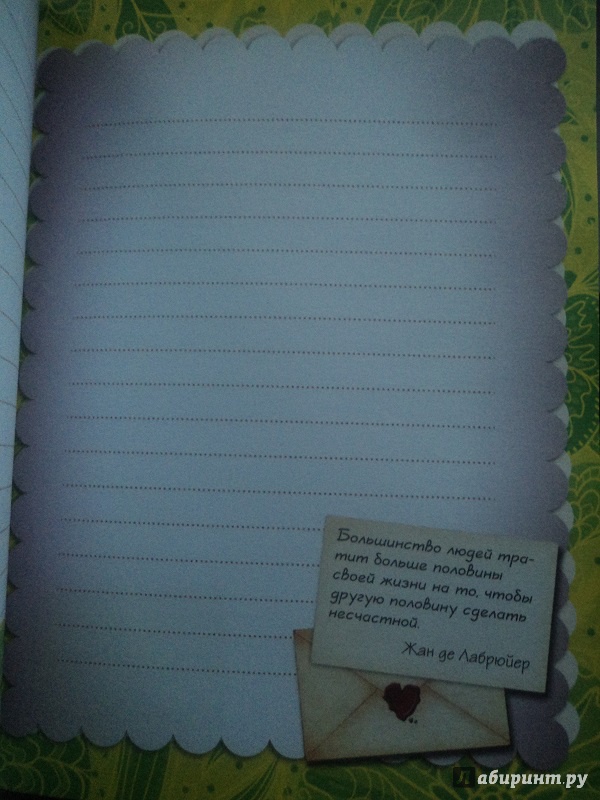 Большинство людей тра-
тит больше половины
своей жизни на то, чтобы
другую половину сделать
несчастной.
Жан де Лабрюйер
Лабиринт.ру